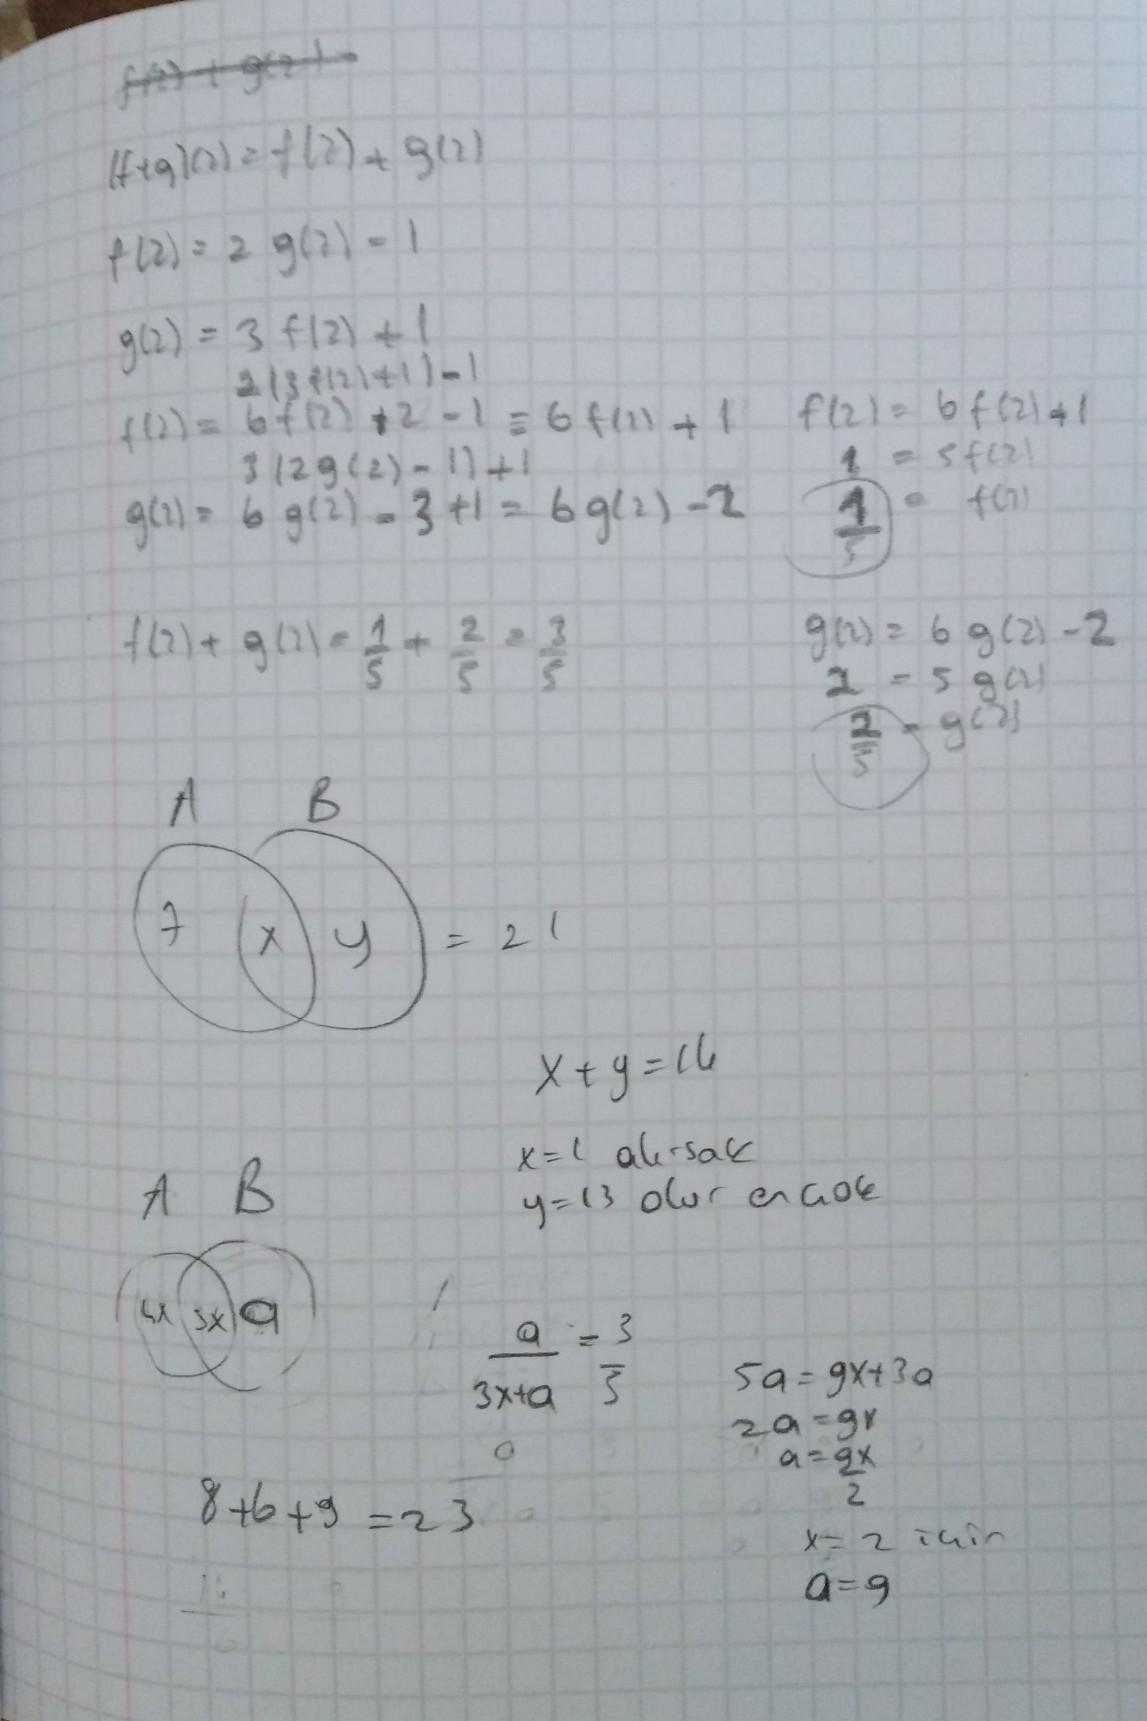 f(2) + g(2) =
(f+g)(2) = f(2) + g(2)
f(2) = 2 g(2) - 1
g(2) = 3 f(2) + 1
2(3f(2)+1) - 1
f(2) = 6f(2) + 2 - 1 = 6f(2) + 1
3(2g(2) - 1) + 1
g(2) = 6g(2) - 3 + 1 = 6g(2) - 2
f(2) = 6f(2) + 1
1 = 5f(2)
1/5 = f(2)
f(2) + g(2) = 1/5 + 2/5 = 3/5
g(2) = 6g(2) - 2
2 = 5g(2)
2/5 = g(2)
A B
7 x y = 21
x + y = 14
x = 1 alırsak
y = 13 olur en çok
A B
4x 3x a
a/3x+a = 3/5
5a = 9x + 3a
2a = 9x
a = 9x/2
x = 2 için
a = 9
8 + 6 + 9 = 23